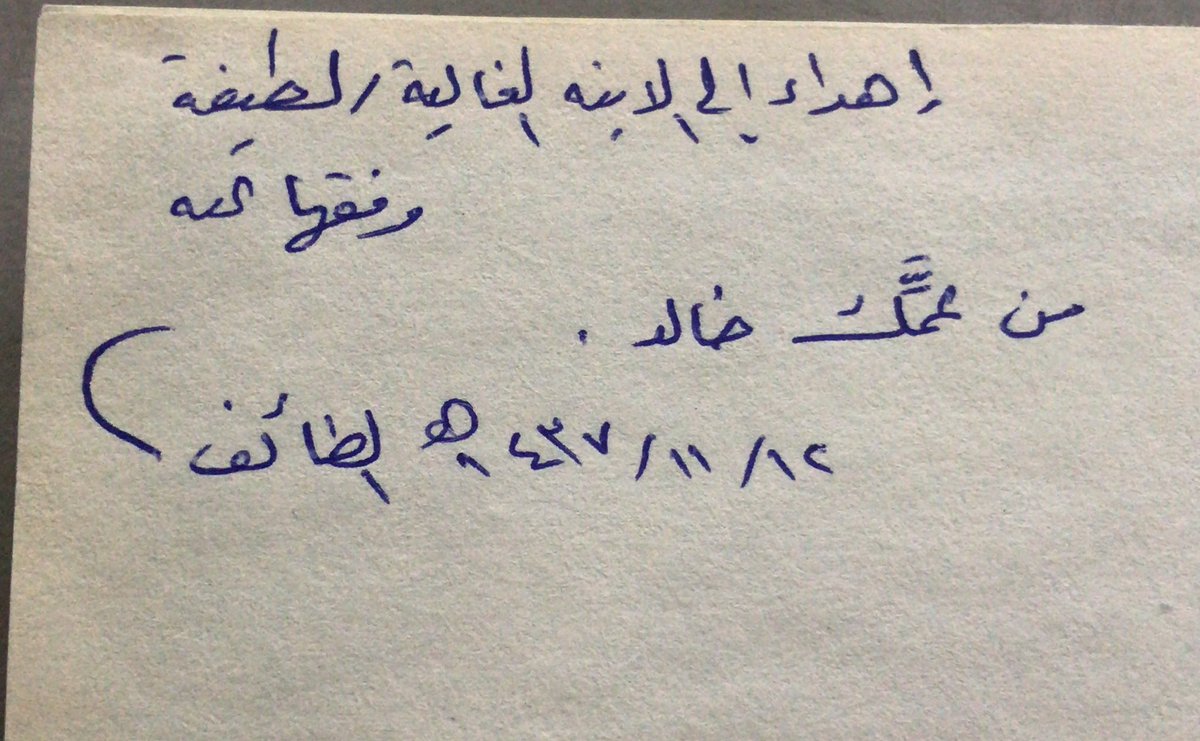 إهداء إلى الابنه الغالية / لطيفة
وفقها الله
من عمَّك خالد .
١٢ / ١١ / ١٤٣٧ هـ الطائف